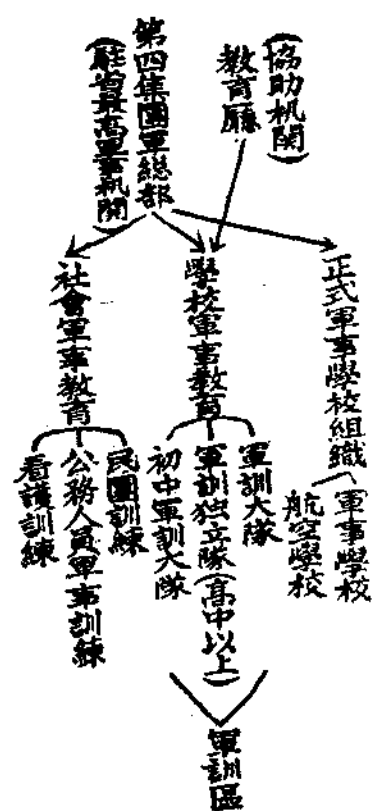 (協助机関)
教育廳
第四集團軍総部
(駐省最高軍事机關)
正式軍事學校組織
軍事學校
航空學校
學校軍事教育
軍訓大隊
軍訓独立隊(高中以上)
初中軍訓大隊
軍訓區
社會軍事教育
民團訓練
公務人員軍事訓練
看護訓練